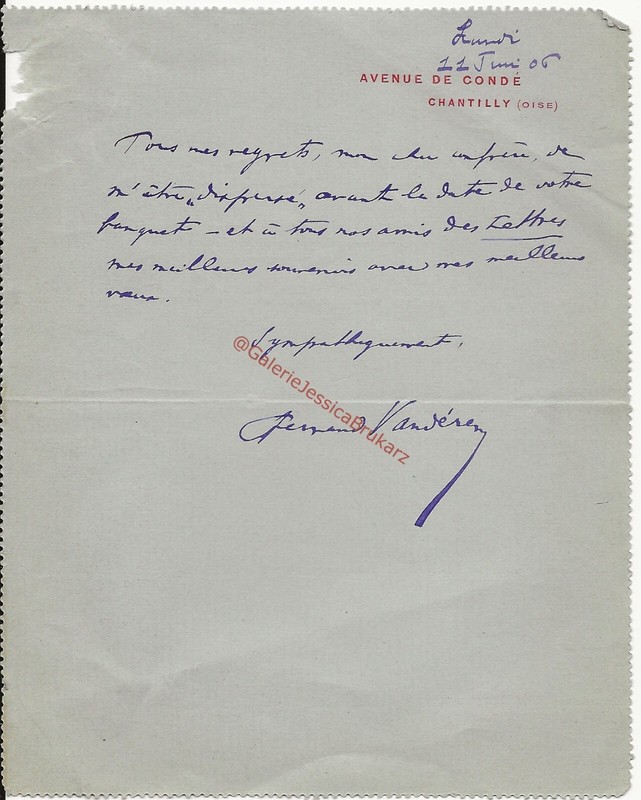 Lundi
11 Juin 06
AVENUE DE CONDÉ
CHANTILLY (OISE)
Tous mes regrets, mon cher confrère, de
m'être „dispersé„ avant la date de votre
banquet – et à tous nos amis des Lettres
mes meilleurs souvenirs avec mes meilleurs
vœux.
Sympathiquement,
Fernand Vandérem
@GalerieJessicaBrukarz